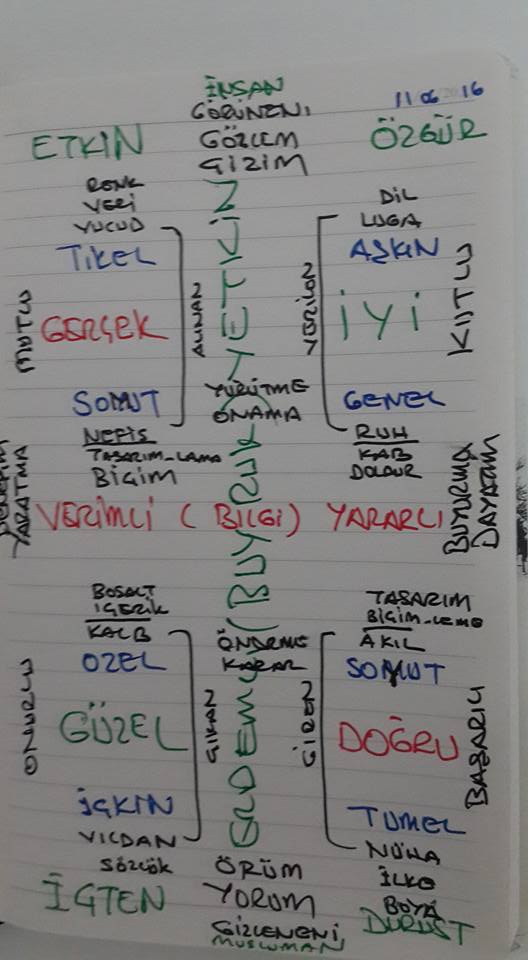 İNSAN
GÖRÜNENİ
11 06 2016
ETKİN
GÖZLEM
ÖZGÜR
GİZİM
RENK
VERİ
VUCUD
DİL
LUGA
TİKEL
AŞKIN
MUTLU
GERÇEK
ALINAN
YETKİN
VERİLEN
İYİ
KUTLU
SOMUT
YÜRÜTME
ONAMA
GENEL
NEFİS
TASARIM-LAMA
BİÇİM
RUH
KAB
DOLDUR
YARATMA
VERİMLİ (BİLGİ) YARARLI
BUYURMA
DAYATIM
(BUYRUK)
BOŞALT
İÇERİK
KALB
ÖNERME
KARAR
TASARIM
BİÇİM-LEME
AKIL
ÖZEL
SOMUT
ONURLU
GÜZEL
ÇIKAN
ERDEMLİ
GİREN
DOĞRU
BAŞARILI
İÇKİN
TUMEL
VİCDAN
NÜHA
SÖZCÜK
ÖRÜM
İLKE
İÇTEN
YORUM
BOYA
DÜRÜST
GİZLENENİ
MUSLUMAN